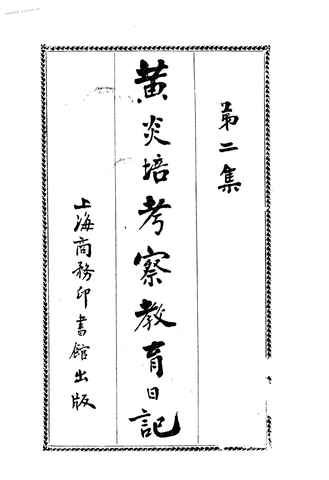 第二集
黄炎培考察教育日記
上海商務印書館出版